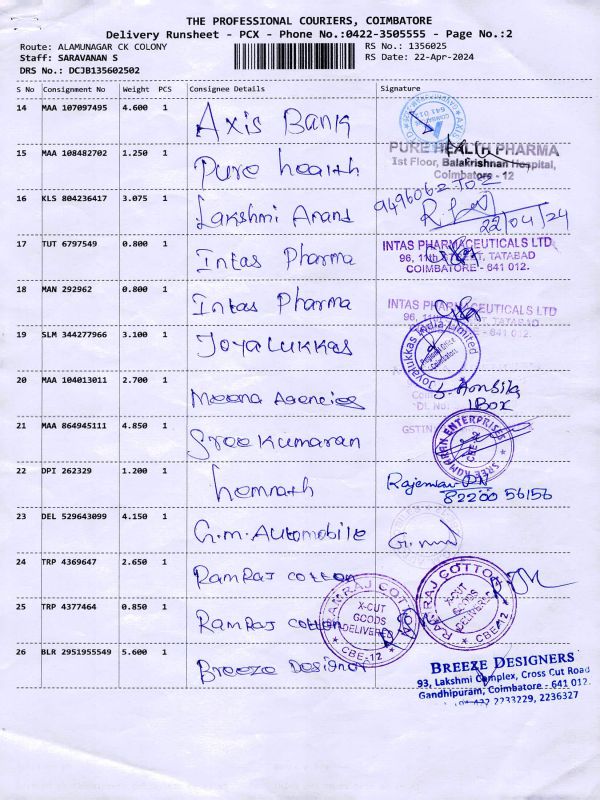 THE PROFESSIONAL COURIERS, COIMBATORE
Delivery Runsheet - PCX - Phone No.:0422-3505555 - Page No.:2
Route: ALAMUNAGAR CK COLONY RS No.: 1356025
Staff: SARAVANAN S RS Date: 22-Apr-2024
DRS No.: DCJB135602502
S No Consignment No Weight PCS Consignee Details Signature
14 MAA 107097495 4.600 1 Axis Bank
641 01
15 MAA 108482702 1.250 1 Pure health
PURE HEALTH PHARMA
1st Floor, Balakrishnan Hospital,
Coimbatore - 12
16 KLS 804236417 3.075 1 Lakshmi Anand
22/04/24
17 TUT 6797549 0.800 1 Intas Pharma
INTAS PHARMACEUTICALS LTD
96, 11th STREET, TATABAD
COIMBATORE - 641 012.
18 MAN 292962 0.800 1 Intas Pharma
INTAS PHARMACEUTICALS LTD
96, 11th STREET, TATABAD
- 641 012.
19 SLM 344277966 3.100 1 Joyalukkas
Joyalukkas India Limited
Regional Office
Coimbatore
20 MAA 104013011 2.700 1 Meena Agencies
1Box
21 MAA 864945111 4.850 1 Sree Kumaran
GSTIN
SREE KUMARAN ENTERPRISES
CBE-12
22 DPI 262329 1.200 1 hemnath
82200 56156
23 DEL 529643099 4.150 1 G.m. Automobile
24 TRP 4369647 2.650 1 Ramraj cotton
RAMRAJ COTTON
X-CUT
GOODS
DELIVERED
CBE-12
25 TRP 4377464 0.850 1 Ramraj cotton
RAMRAJ COTTON
X-CUT
GOODS
DELIVERED
CBE-12
26 BLR 2951955549 5.600 1 Breeze Designer
BREEZE DESIGNERS
93, Lakshmi Complex, Cross Cut Road
Gandhipuram, Coimbatore - 641 012.
2233229, 2236327